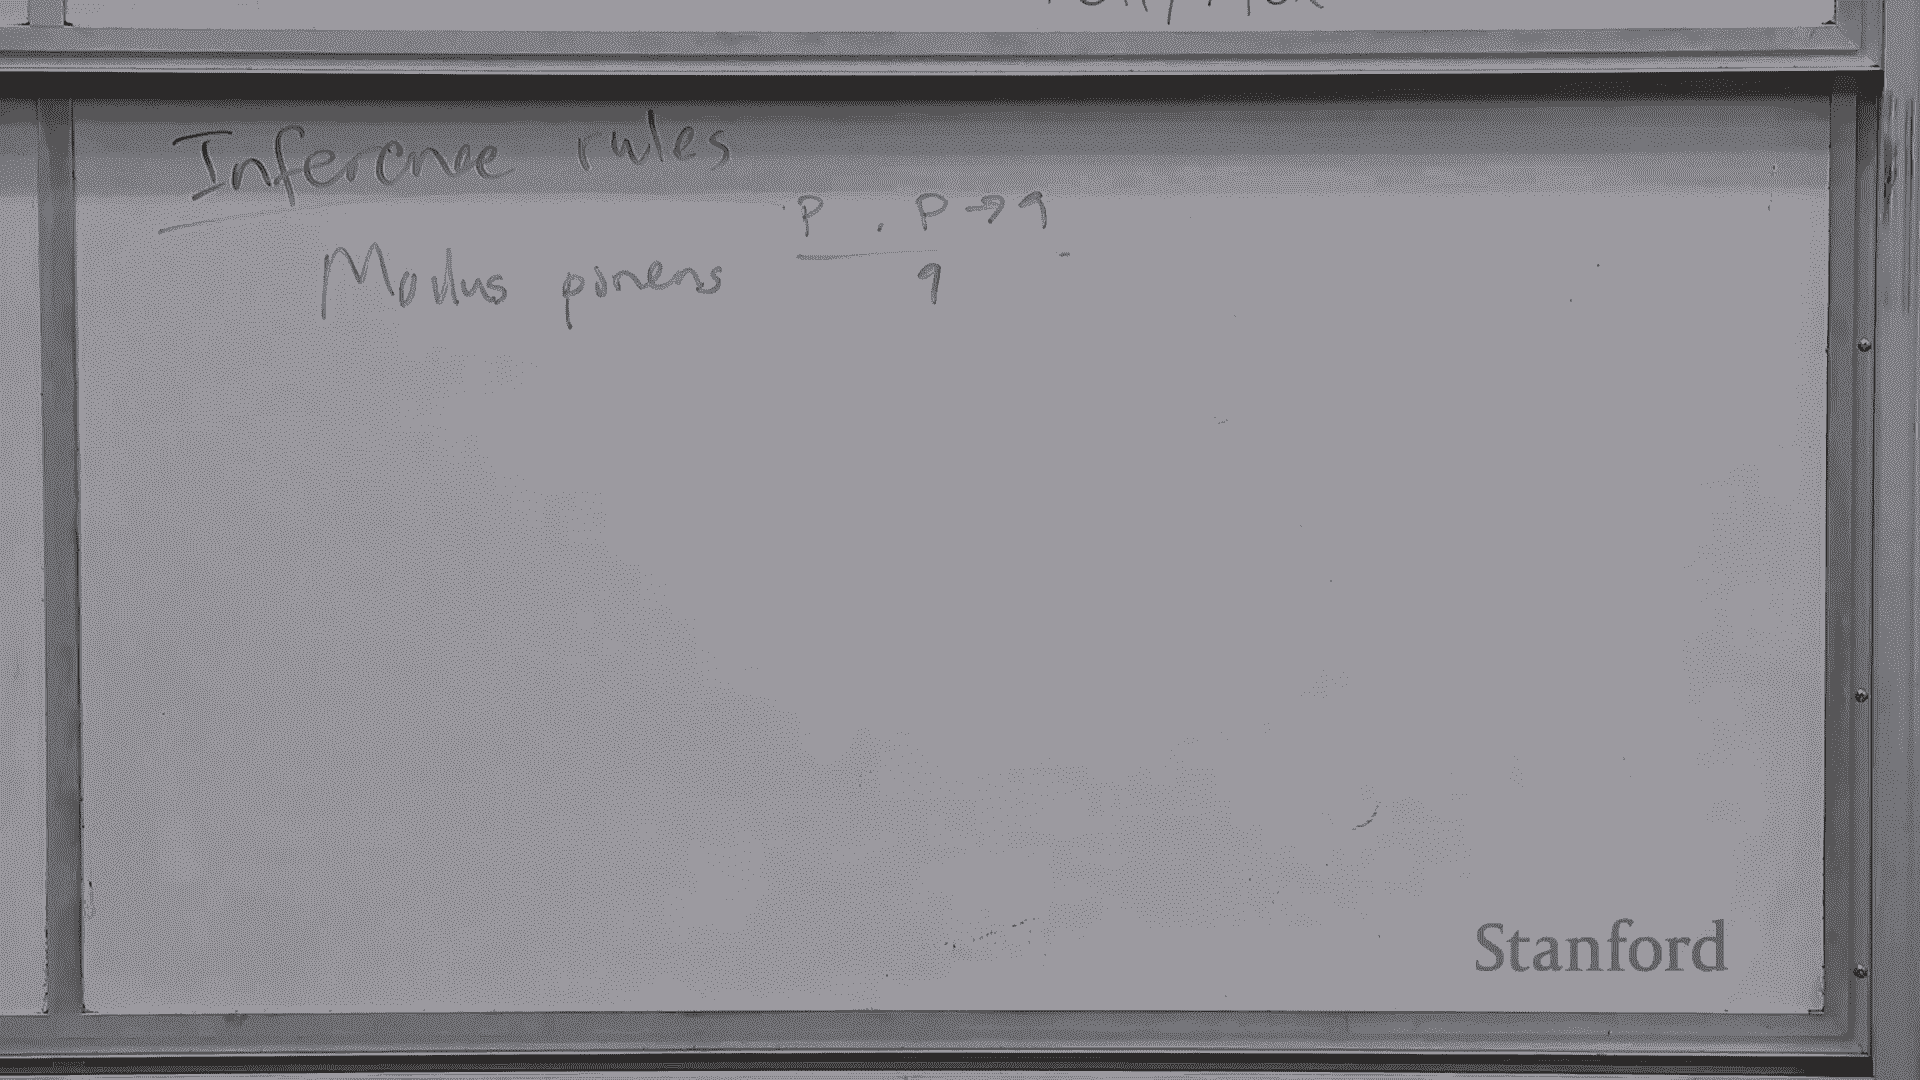 Inference rules
p , p → q
Modus ponens
q
Stanford